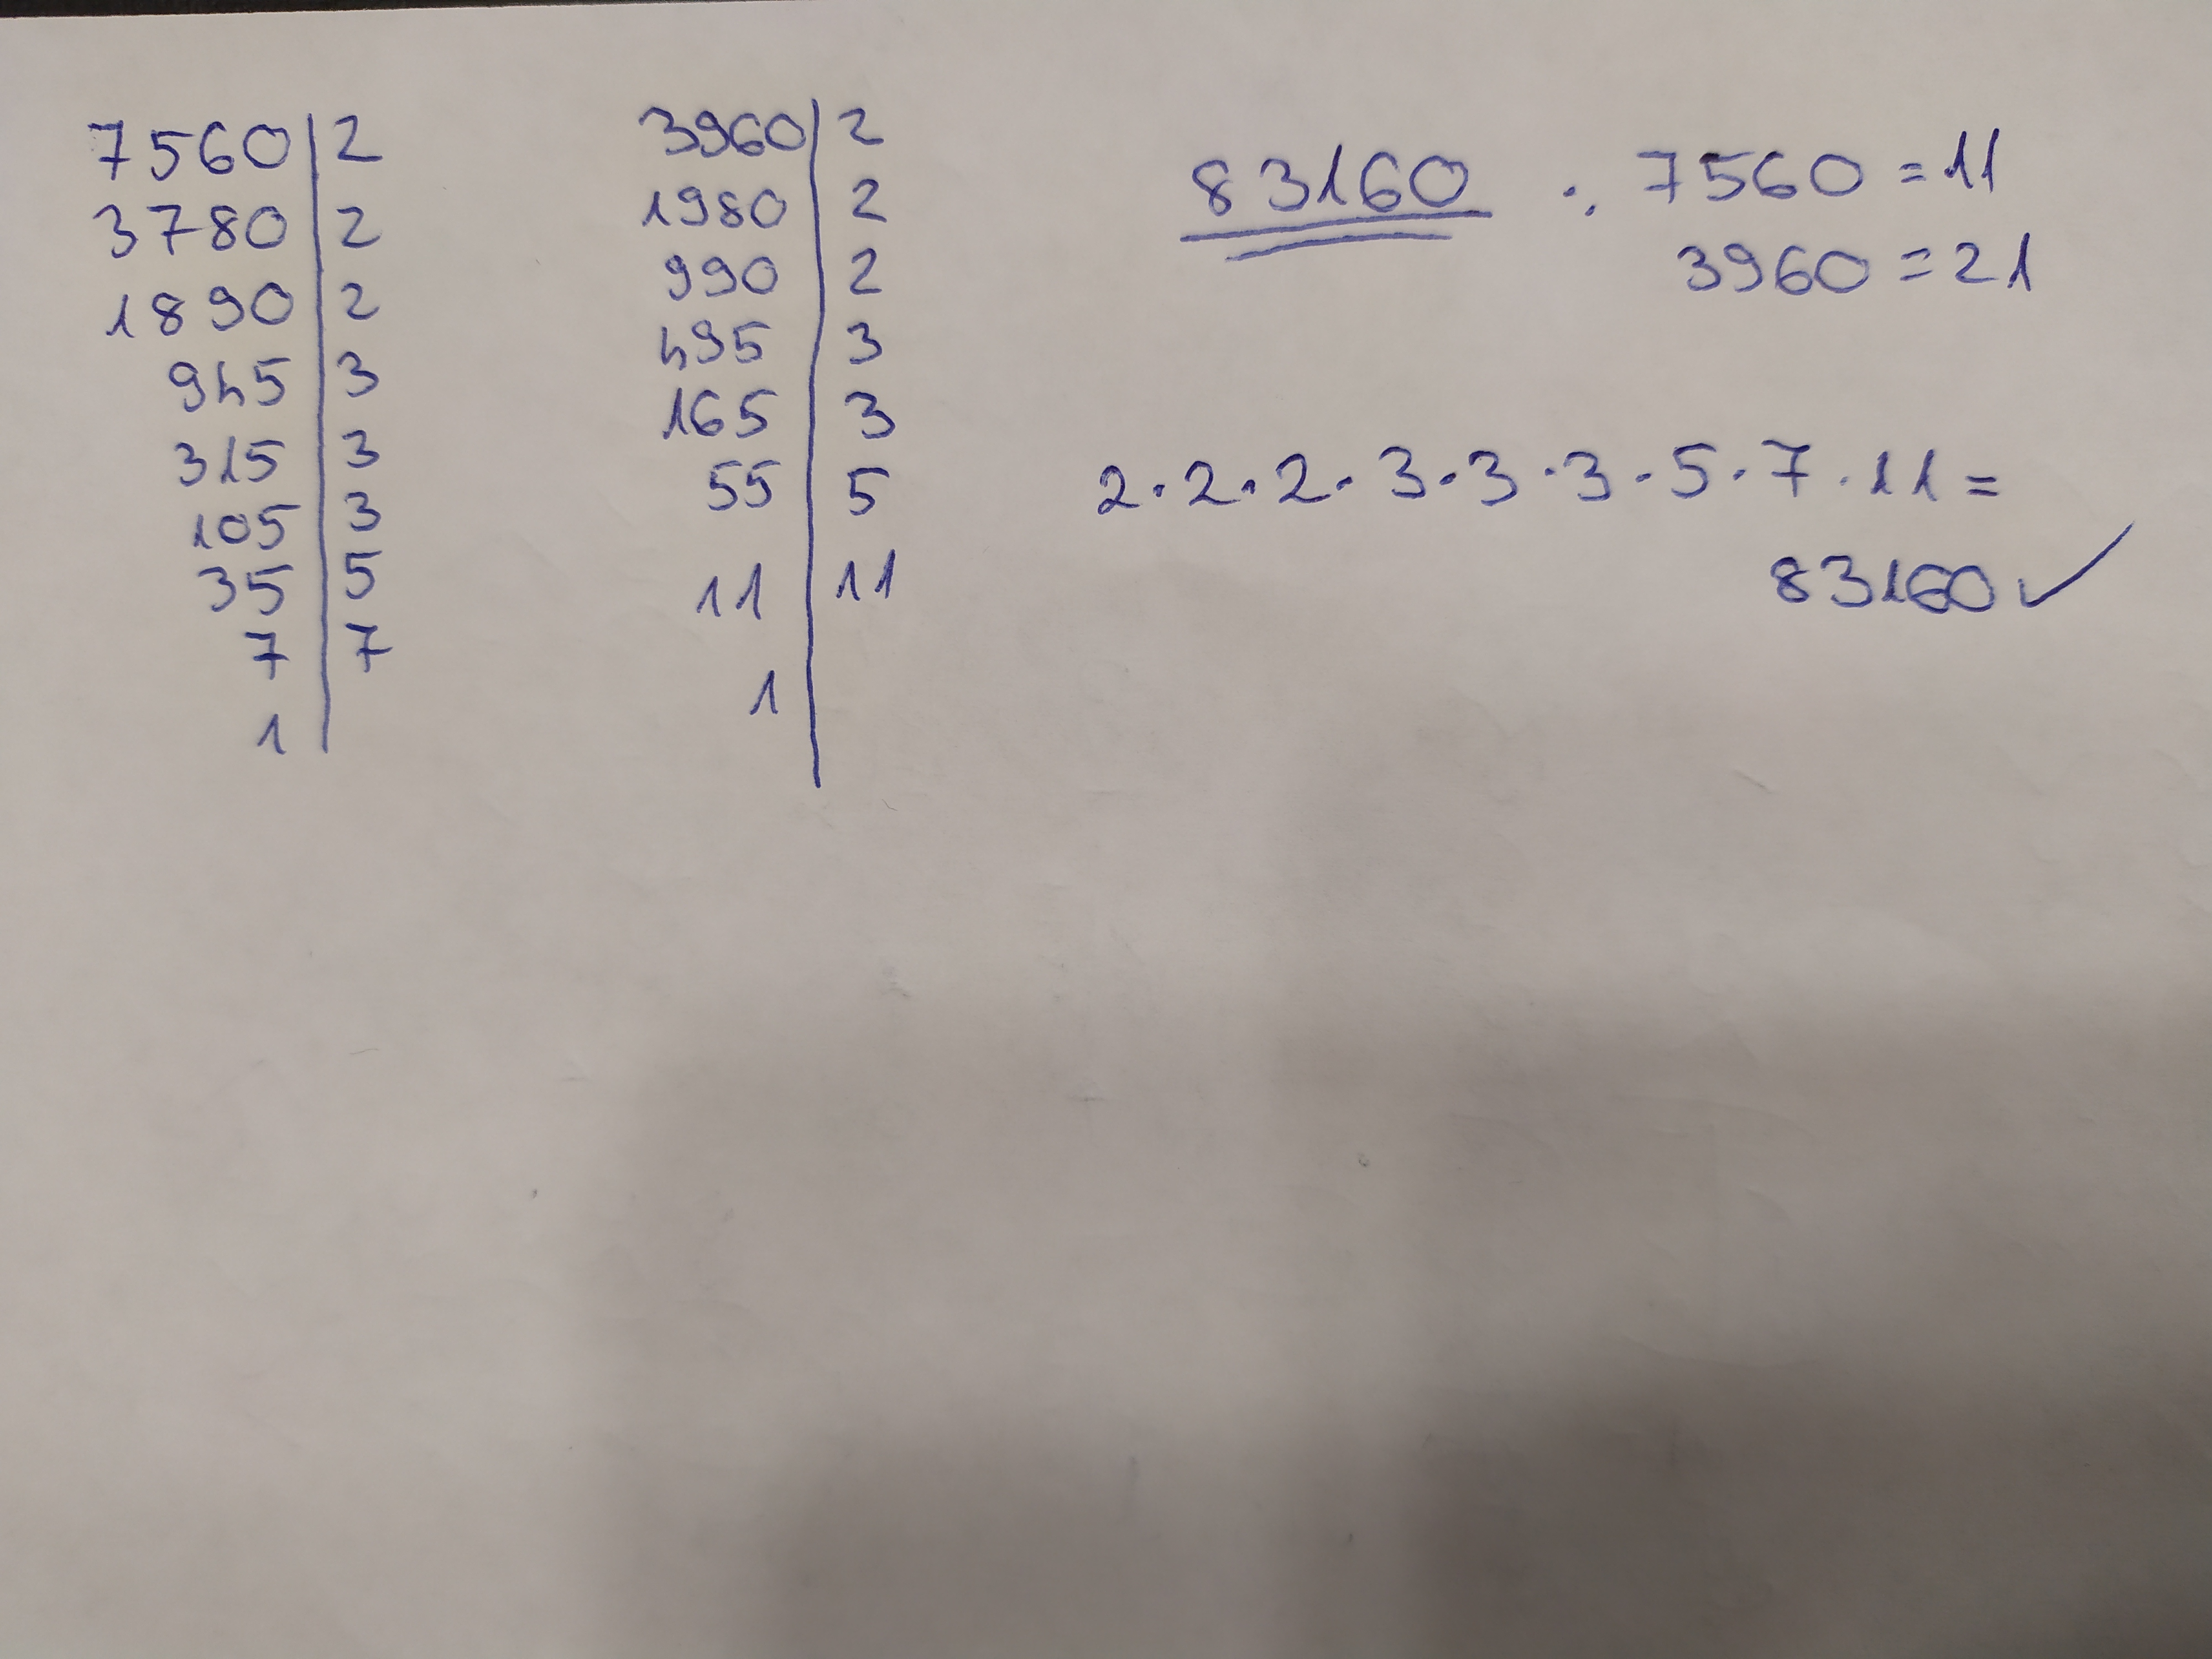 7560 | 2
3780 | 2
1890 | 2
945 | 3
315 | 3
105 | 3
35 | 5
7 | 7
1 |
3960 | 2
1980 | 2
990 | 2
495 | 3
165 | 3
55 | 5
11 | 11
1 |
83160 : 7560 = 11
3960 = 21
2·2·2·3·3·3·5·7·11=
83160 ✓